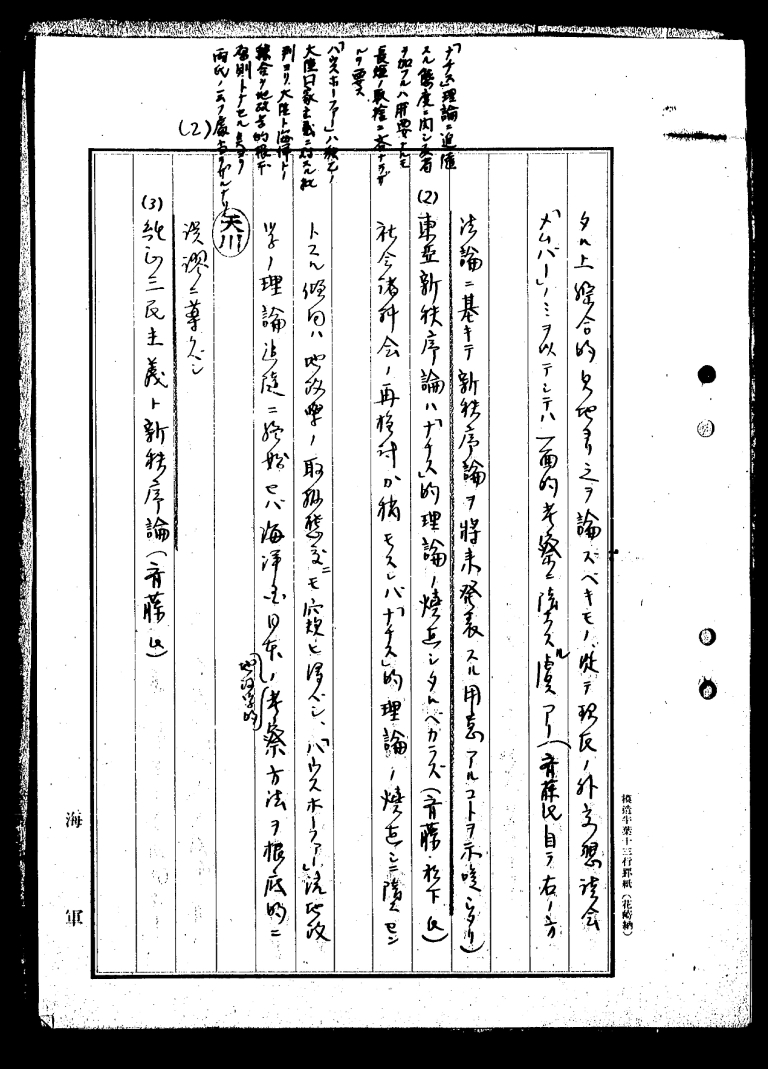 タル上綜合的見地ヨリ之ヲ論ズベキモノ、従テ現在ノ外交懇談会
「メムバー」ノミヲ以テシテハ一面的考察ニ陥ル虞アリ(斉藤氏自ラ右ノ方
法論ニ基キテ新秩序論ヲ将来発表スル用意アルコトヲ示唆シタリ)
(2)東亜新秩序論ハ「ナチス」的理論ノ焼直シタルベカラズ(斉藤、松下氏)
社会諸科会ノ再検討カ
モスレバ「ナチス」的理論ノ焼直シニ陥ラン
トスル傾向ハ地政学ノ取扱態度ニモ窺ヒ得ベシ、「ハウスホーファー」流地政
学ノ理論追随ニ終始セバ海洋国日本ノ地政学的考察方法ヲ根底的ニ
誤謬ニ導クベシ
(3)純正三民主義ト新秩序論(斉藤氏)
「ナチス」理論ニ追随
スル態度ニ関シ反省
ヲ加フルハ肝要ナルモ
長短ノ取捨ニ
ルヲ要ス
「ハウスホーファー」ハ
大陸国家主義ニ対スル批
判ヨリ大陸ト海洋トノ
綜合ヲ地政学的根本
原則トナセル
両氏ノ
(2)
天川
海軍
模造半葉十三行罫紙(花崎納)